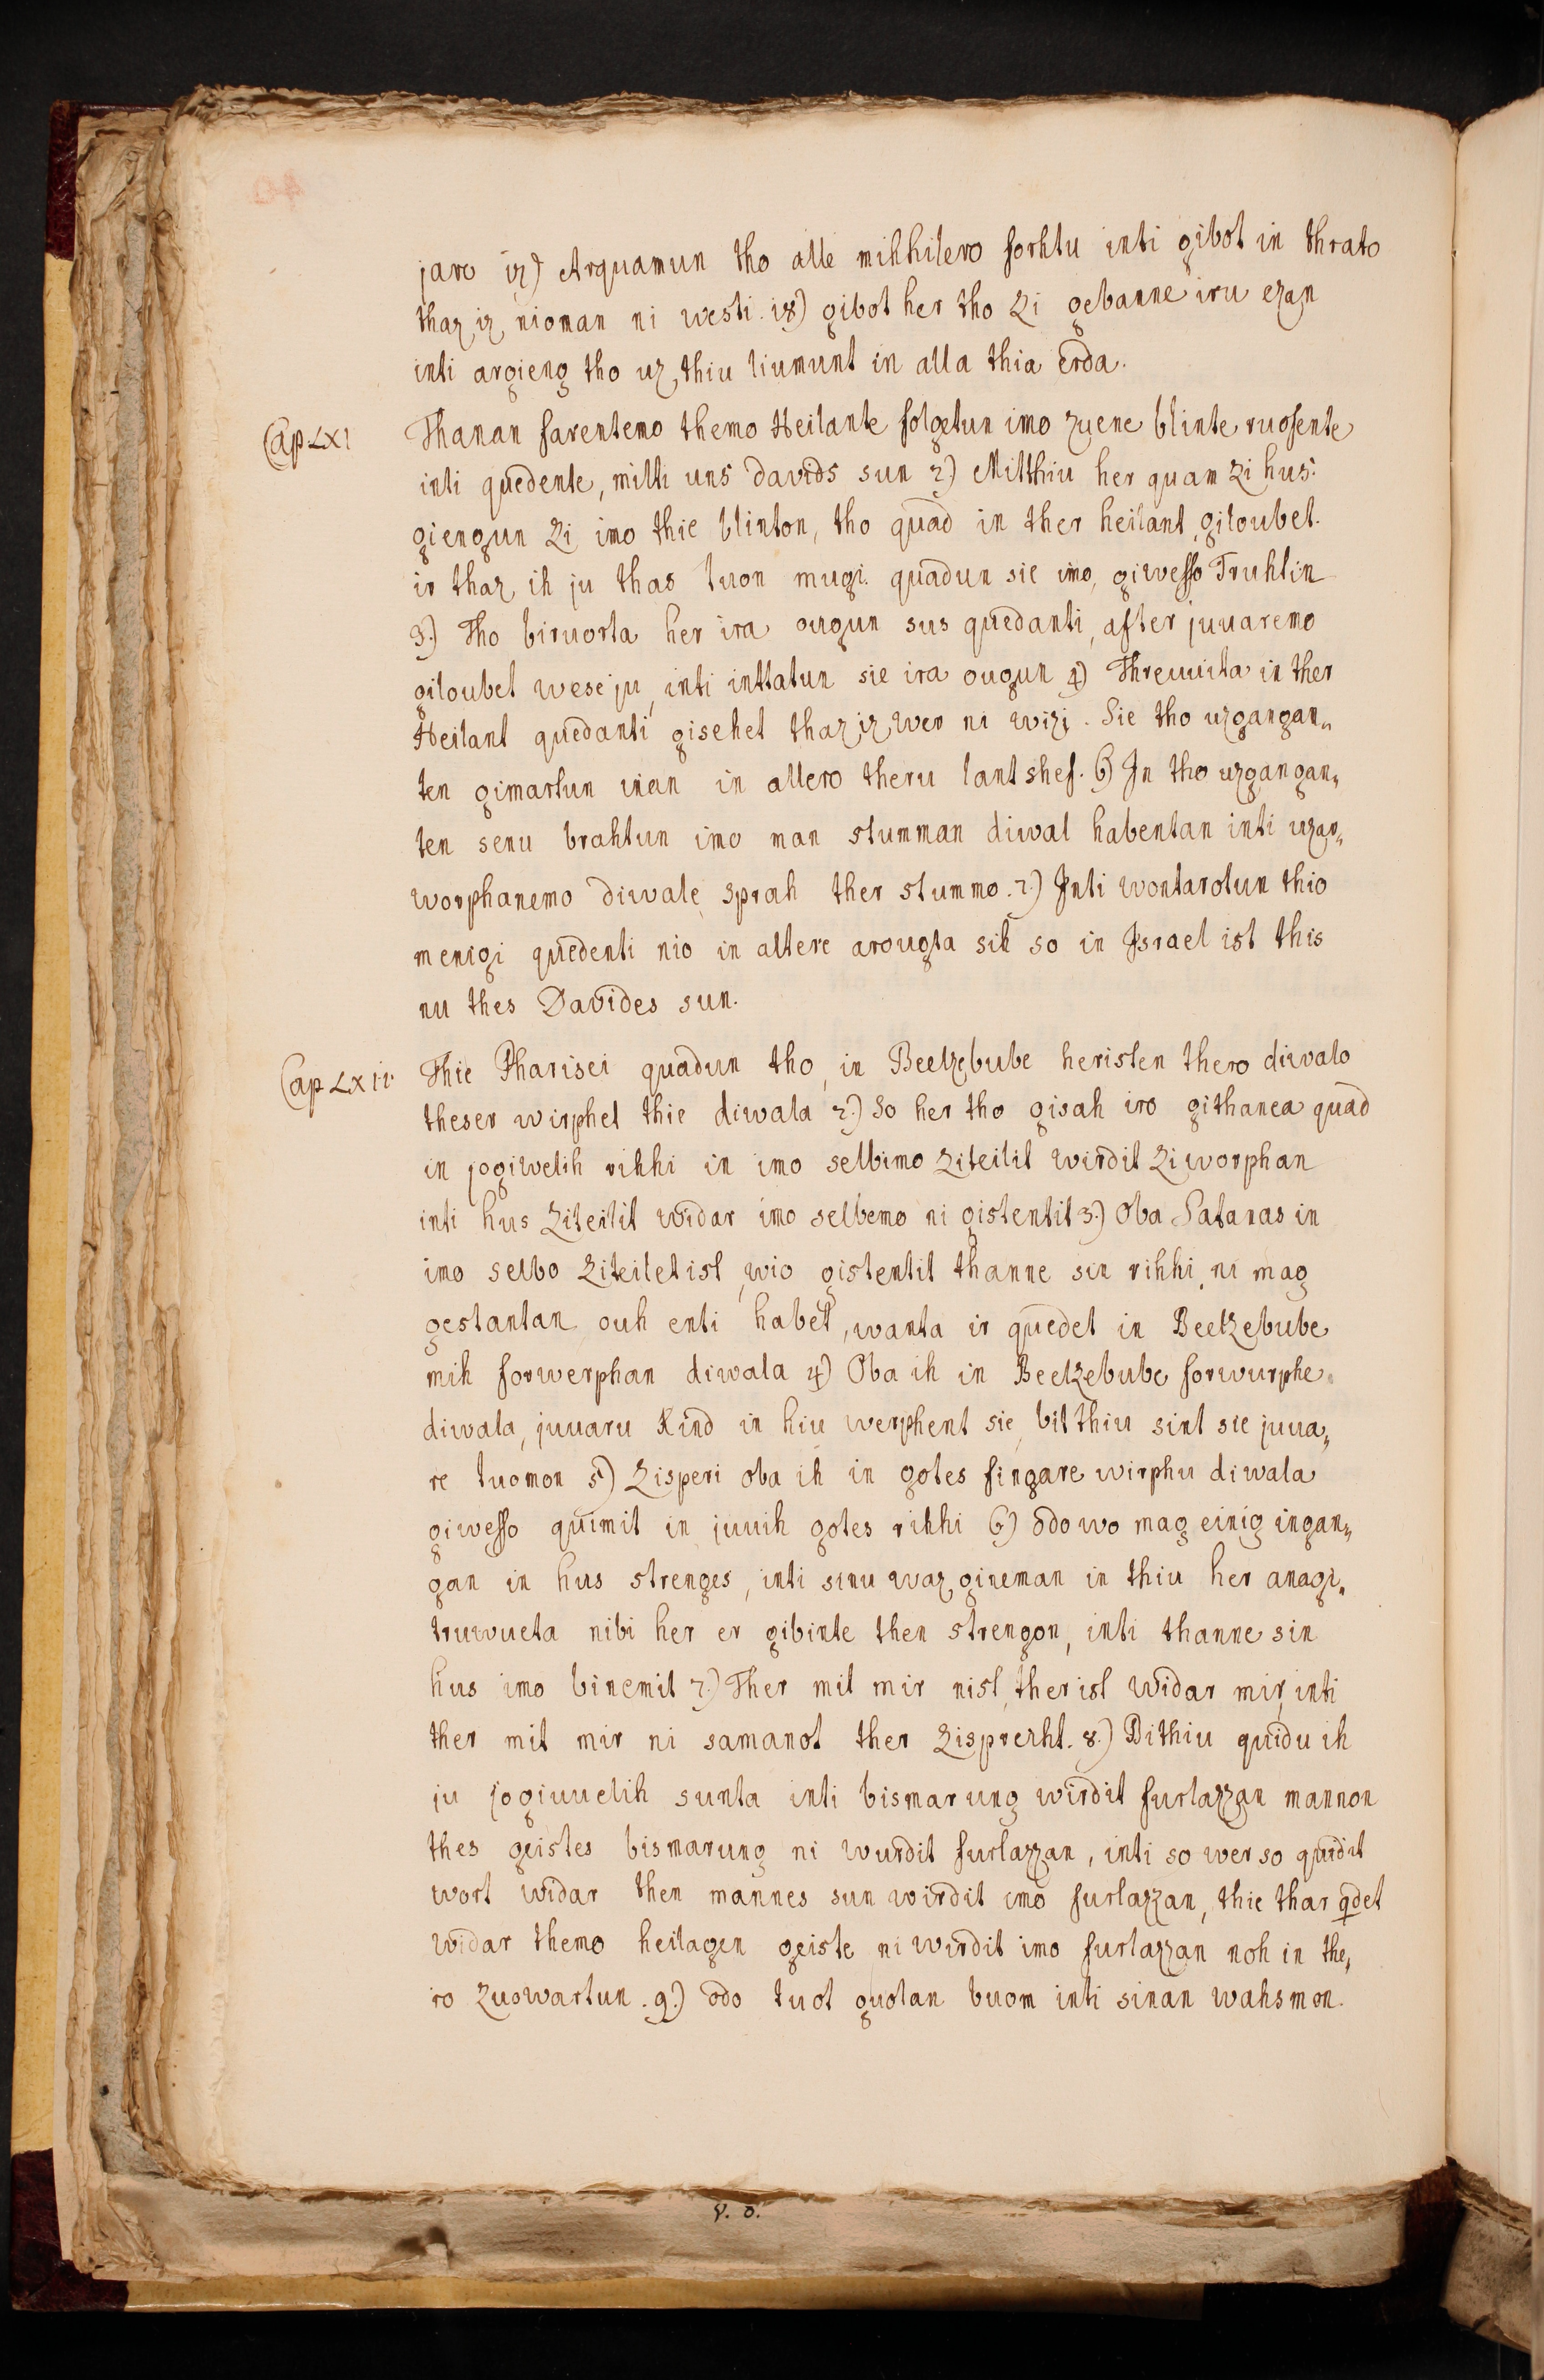 jaro 17) Arquamun tho alle mihhilero forhtu inti gibot in thrato
thaz iz nioman ni westi. 18) gibot her tho zi gebanne iru ezan
inti argieng tho uz thiu liumunt in alla thia erda.
Cap LXI Thanan farentemo themo Heilante folgetun imo zuene blinte ruofente
inti quedente, milti uns davids sun 2) Mitthiu her quam zi hus:
giengun zi imo thie blinton, tho quad in ther heilant, giloubet.
ir thaz ih ju thas tuon mugi. quadun sie imo, giwesso Truhtin
3.) Tho biruorta her ira ougun sus quedanti, after juuaremo
giloubet wese ju, inti inttatun sie ira ougun 4) Threuuita in ther
Heilant quedanti gisehet thaz iz wer ni wizi. Sie tho uzgangan„
ten gimartun inan in allero theru lantshef. 6) In tho uzgangan„
ten senu brahtun imo man stumman diwal habentan inti uzar„
worphanemo diwale sprah ther stummo. 7.) Inti wontarotun thio
menigi quedenti nio in altere arougta sih so in Israel ist this
nu thes Davides sun.
Cap LXII Thie Pharisei quadun tho, in Beelzebube heristen thero diwalo
theser wirphet thie diwala 2.) So her tho gisah iro githanca quad
in jogiwelih rihhi in imo selbimo ziteilit wirdit ziworphan
inti hus ziteilit widar imo selbemo ni gistentit 3.) Oba Satanas in
imo selbo ziteilet ist, wio gistentit thanne sin rihhi, ni mag
gestantan ouh enti habet, wanta ir quedet in Beelzebube
mih forwerphan diwala 4) Oba ih in Beelzebube forwurphe
diwala, juuaru Kind in hiu werphent sie, bit thiu sint sie juua„
re tuomon 5) Zisperi oba ih in gotes fingare wirphu diwala
giwesso quimit in juuih gotes rihhi 6) odo wo mag einig ingan„
gan in hus strenges, inti sinu waz gineman in thiu her anagi„
truwueta nibi her er gibinte then strengon, inti thanne sin
hus imo binemit 7.) Ther mit mir nist, ther ist widar mir, inti
ther mit mir ni samanot ther zisprezht. 8.) Bithiu quidu ih
ju jogiuuelih sunta inti bismarung wirdit furlazzan mannon
thes geistes bismarung ni wurdit furlazzan, inti so wer so quidit
wort widar then mannes sun wirdit imo furlazzan, thie thar qdet
widar themo heilagen geiste ni wirdit imo furlazzan noh in the„
ro zuowartun. 9.) odo tuot guotan buom inti sinan wahsmon.
V. D.